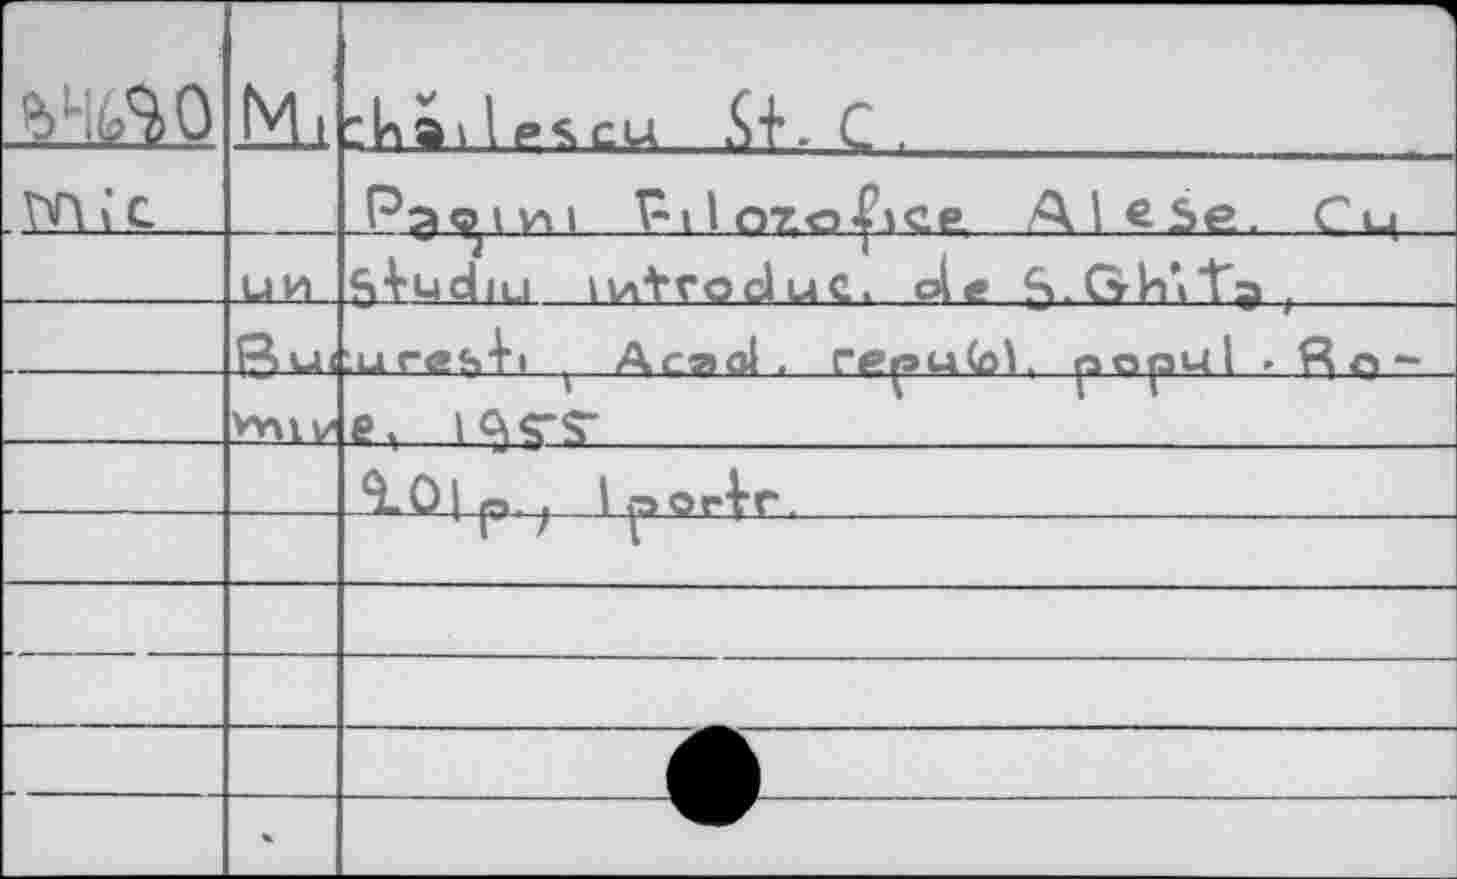 Michăilescu St. C.
mic Pagini Filozofice Alese. Cu
un studiu introduc. de S. Ghiţa,
Bucureşti, Acad. republ. popul. Ro-
mine, 1955
201 p., 1 portr.